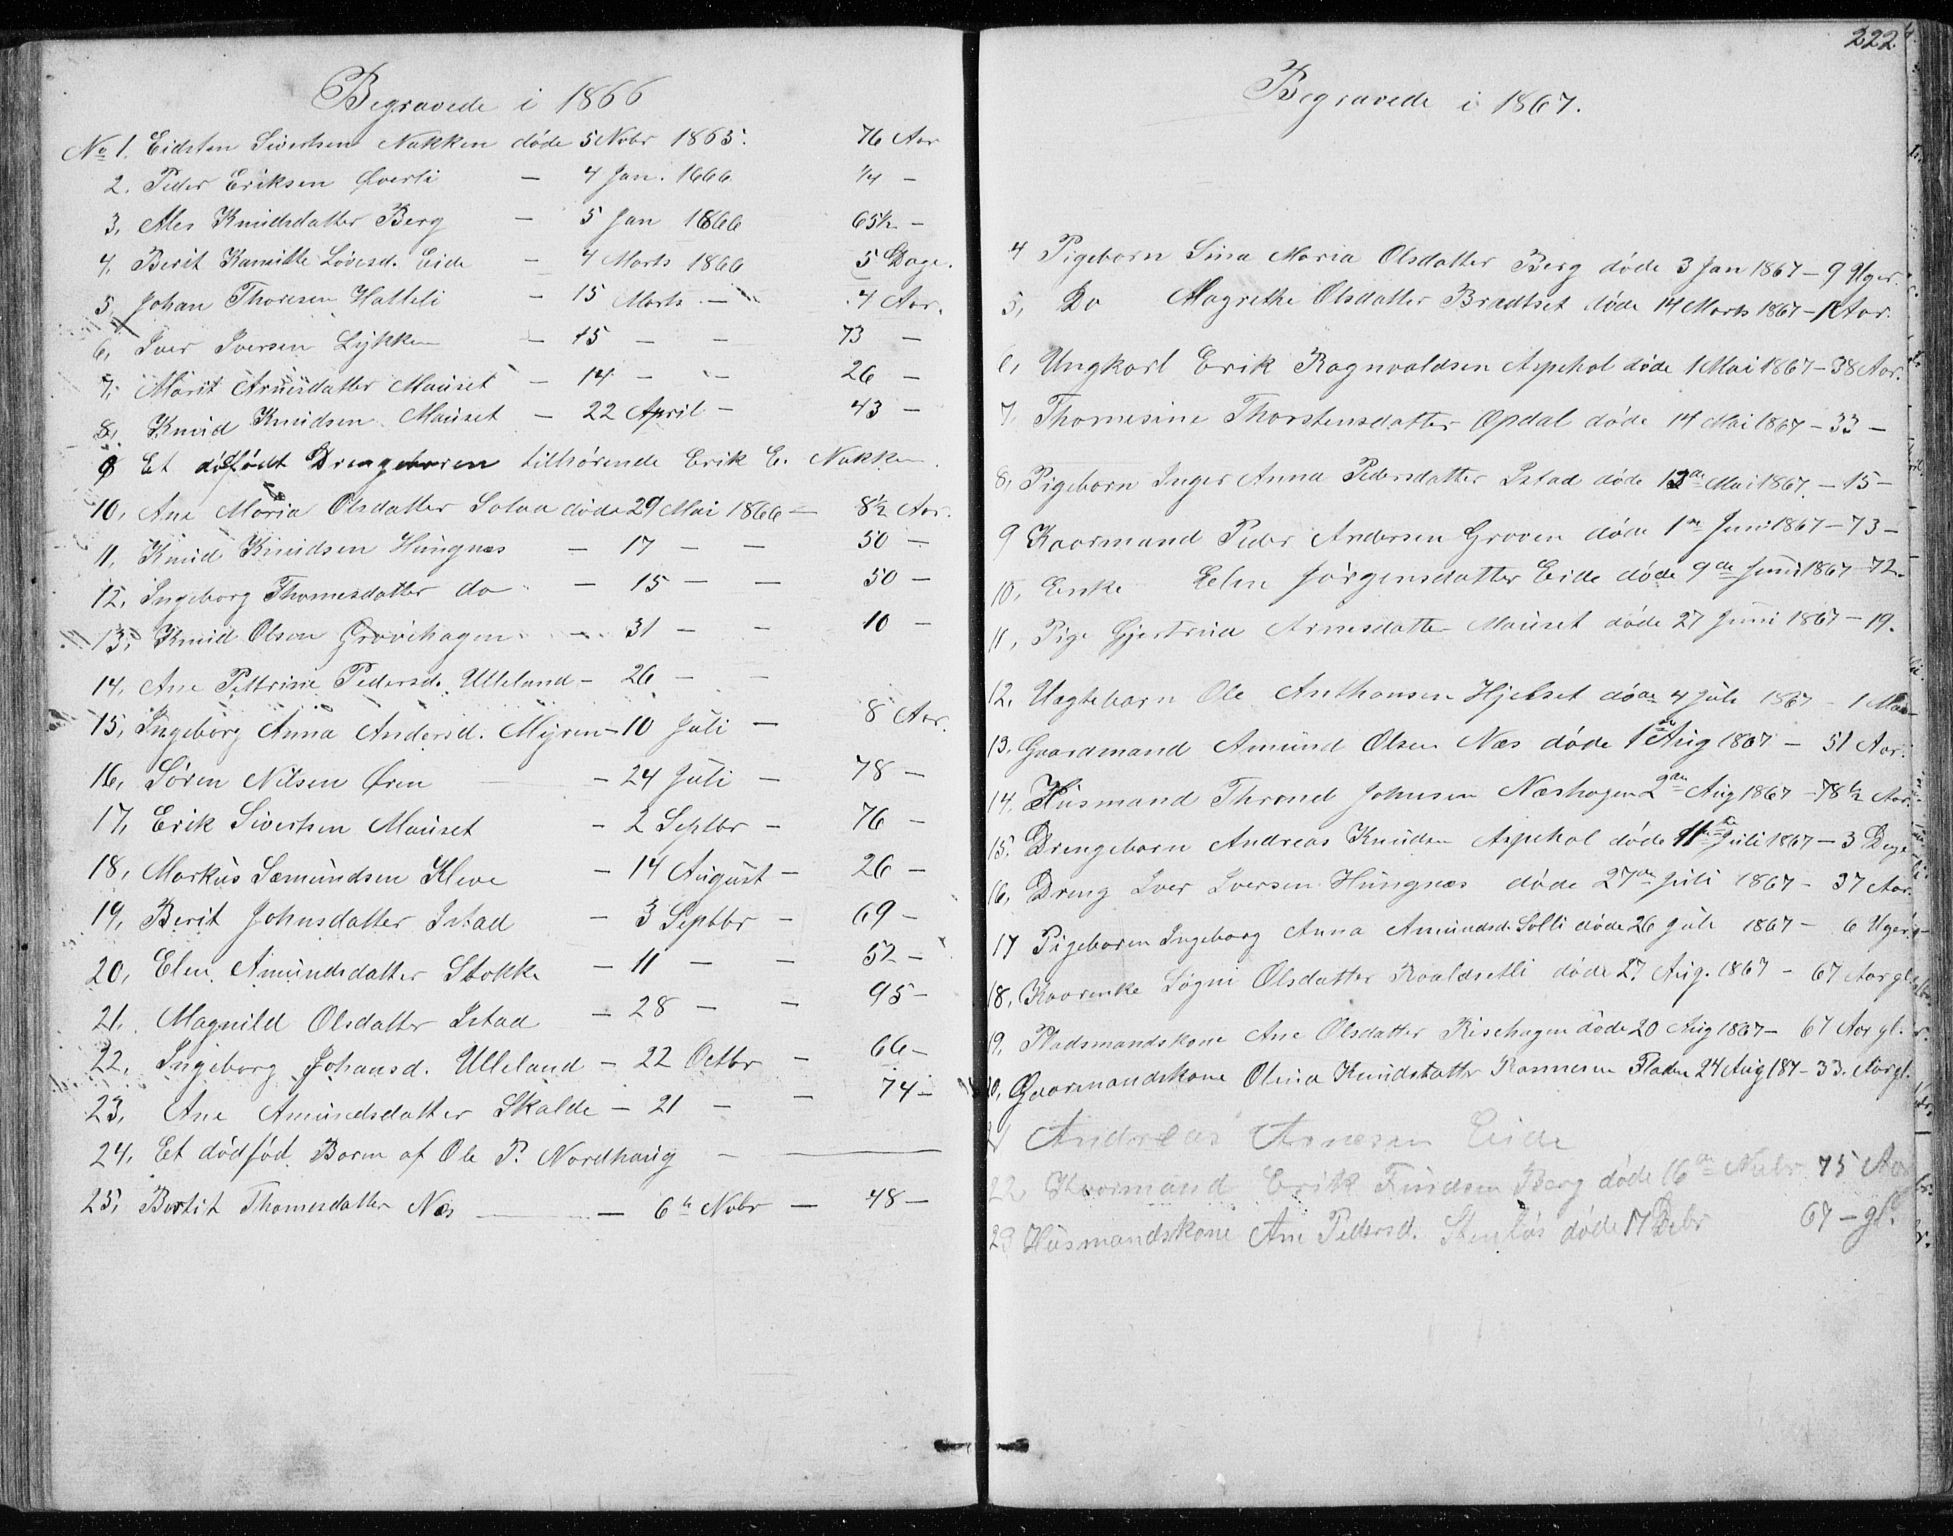 Begravede i 1866
No 1. Eidsten Sivertsen Nakken døde 5 Nobr 1865. 76 Aar
2. Peder Eriksen Øverli - 4 Jan. 1866 1/4 -
3, Ales Knudsdatter Berg - 5 Jan 1866 65½ -
4, Berit Kamille Løvesd. Eide - 4 Marts 1866 5 Dage.
5, Johan Thoresen Hatteli - 15 Marts - 4 Aar.
6, Iver Iversen Lykken - 15 - - 73 -
7, Marit Arnesdatter Mauset - 14 - - 26 -
8, Knud Knudsen Mauset - 22 April - 43 -
9 Et dødfødt Drengebaren tilhørende Erik E. Nakken.
10, Ane Maria Olsdatter Solaa døde 29 Mai 1866 - 8½ Aar.
11, Knud Knudsen Hungnæs - 17 - - 50 -
12, Ingeborg Thomesdatter do - 15 - - 50 -
13, Knud Olsen Grovehagen - 31 - - 10 -
14, Ane Pettrine Pedersd. Ulleland - 26 - -
15, Ingeborg Anna Andersd. Myren - 10 Juli - 8 Aar.
16, Søren Nilsen Øren - 24 Juli - 78 -
17, Erik Sivertsen Mauset - 2 Septbr - 76 -
18, Markus Sæmundsen Kleve - 14 August - 26 -
19, Berit Johnsdatter Istad - 3 Septbr - 69 -
20, Elen Amundsdatter Stokke - 11 - - 52 -
21, Magnild Olsdatter Istad - 28 - - 95 -
22, Ingeborg Johansd. Ulleland - 22 Octbr - 66 -
23, Ane Amundsdatter Skalde - 21 - - 74 -
24, Et dødfød Barn af Ole P. Nordhaug -
25, Bertit Thomesdatter Næs - 6te Nobr - 48 -
222
Begravede i 1867.
4 Pigebarn Sina Maria Olsdatter Berg døde 3 Jan 1867 - 9 Uger.
5, Do Magrethe Olsdatter Bradtset døde 14 Marts 1867 - 1 Aar.
6, Ungkarl Erik Ragnvaldsen Aspehol døde 1 Mai 1867 - 38 Aar.
7, Thomesine Thorstensdatter Opdal døde 14 Mai 1867 - 33 -
8, Pigebarn Inger Anna Pedersdatter Istad døde 13de Mai 1867. - 15 -
9 Kaarmand Peder Andersen Groven døde 1ste Juni 1867 - 73 -
10, Enke Eelen Jørgensdatter Eide døde 9de Juni 1867 - 72.
11, Pige Gjertrud Arnesdatter Mauset døde 27 Juni 1867 - 19.
12, Uægtebarn Ole Anthonsen Hjelset døde 4 Juli 1867 - 1
13, Gaardmand Amund Olsen Næs døde 1ste Aug 1867 - 51 Aar.
14. Husmand Thrond Johnsen Næshagen 2den Aug 1867 - 78½ Aar.
15. Drengebarn Andreas Knudsen Aspehol døde 11te Juli 1867 - 3 Dage
16, Dreng Iver Iversen Hungnæs døde 27de Juli 1867 - 37 Aar.
17 Pigebaren Ingeborg Anna Amundsd. Solli døde 26 Juli 1867 - 6 Uger.
18, Kaarenke Sogni Olsdatter Roaldsetli døde 27 Aug. 1867 - 67 Aar gl.
19, Pladsmandskone Ane Olsdatter Risehagen døde 20 Aug 1867 - 67 Aar gl.
20, Gaarmandskone Olina Knudsdatter Fladen 24 Aug 187 - 33. Aar gl.
21 Andreas Arnesen Eide
22 Kaarmand Erik Findsen Berg døde 16de Nvbr 75 Aar
23 Husmandskone Ane Pedersd. Stenløs døde 17 Debr 67 - gl.